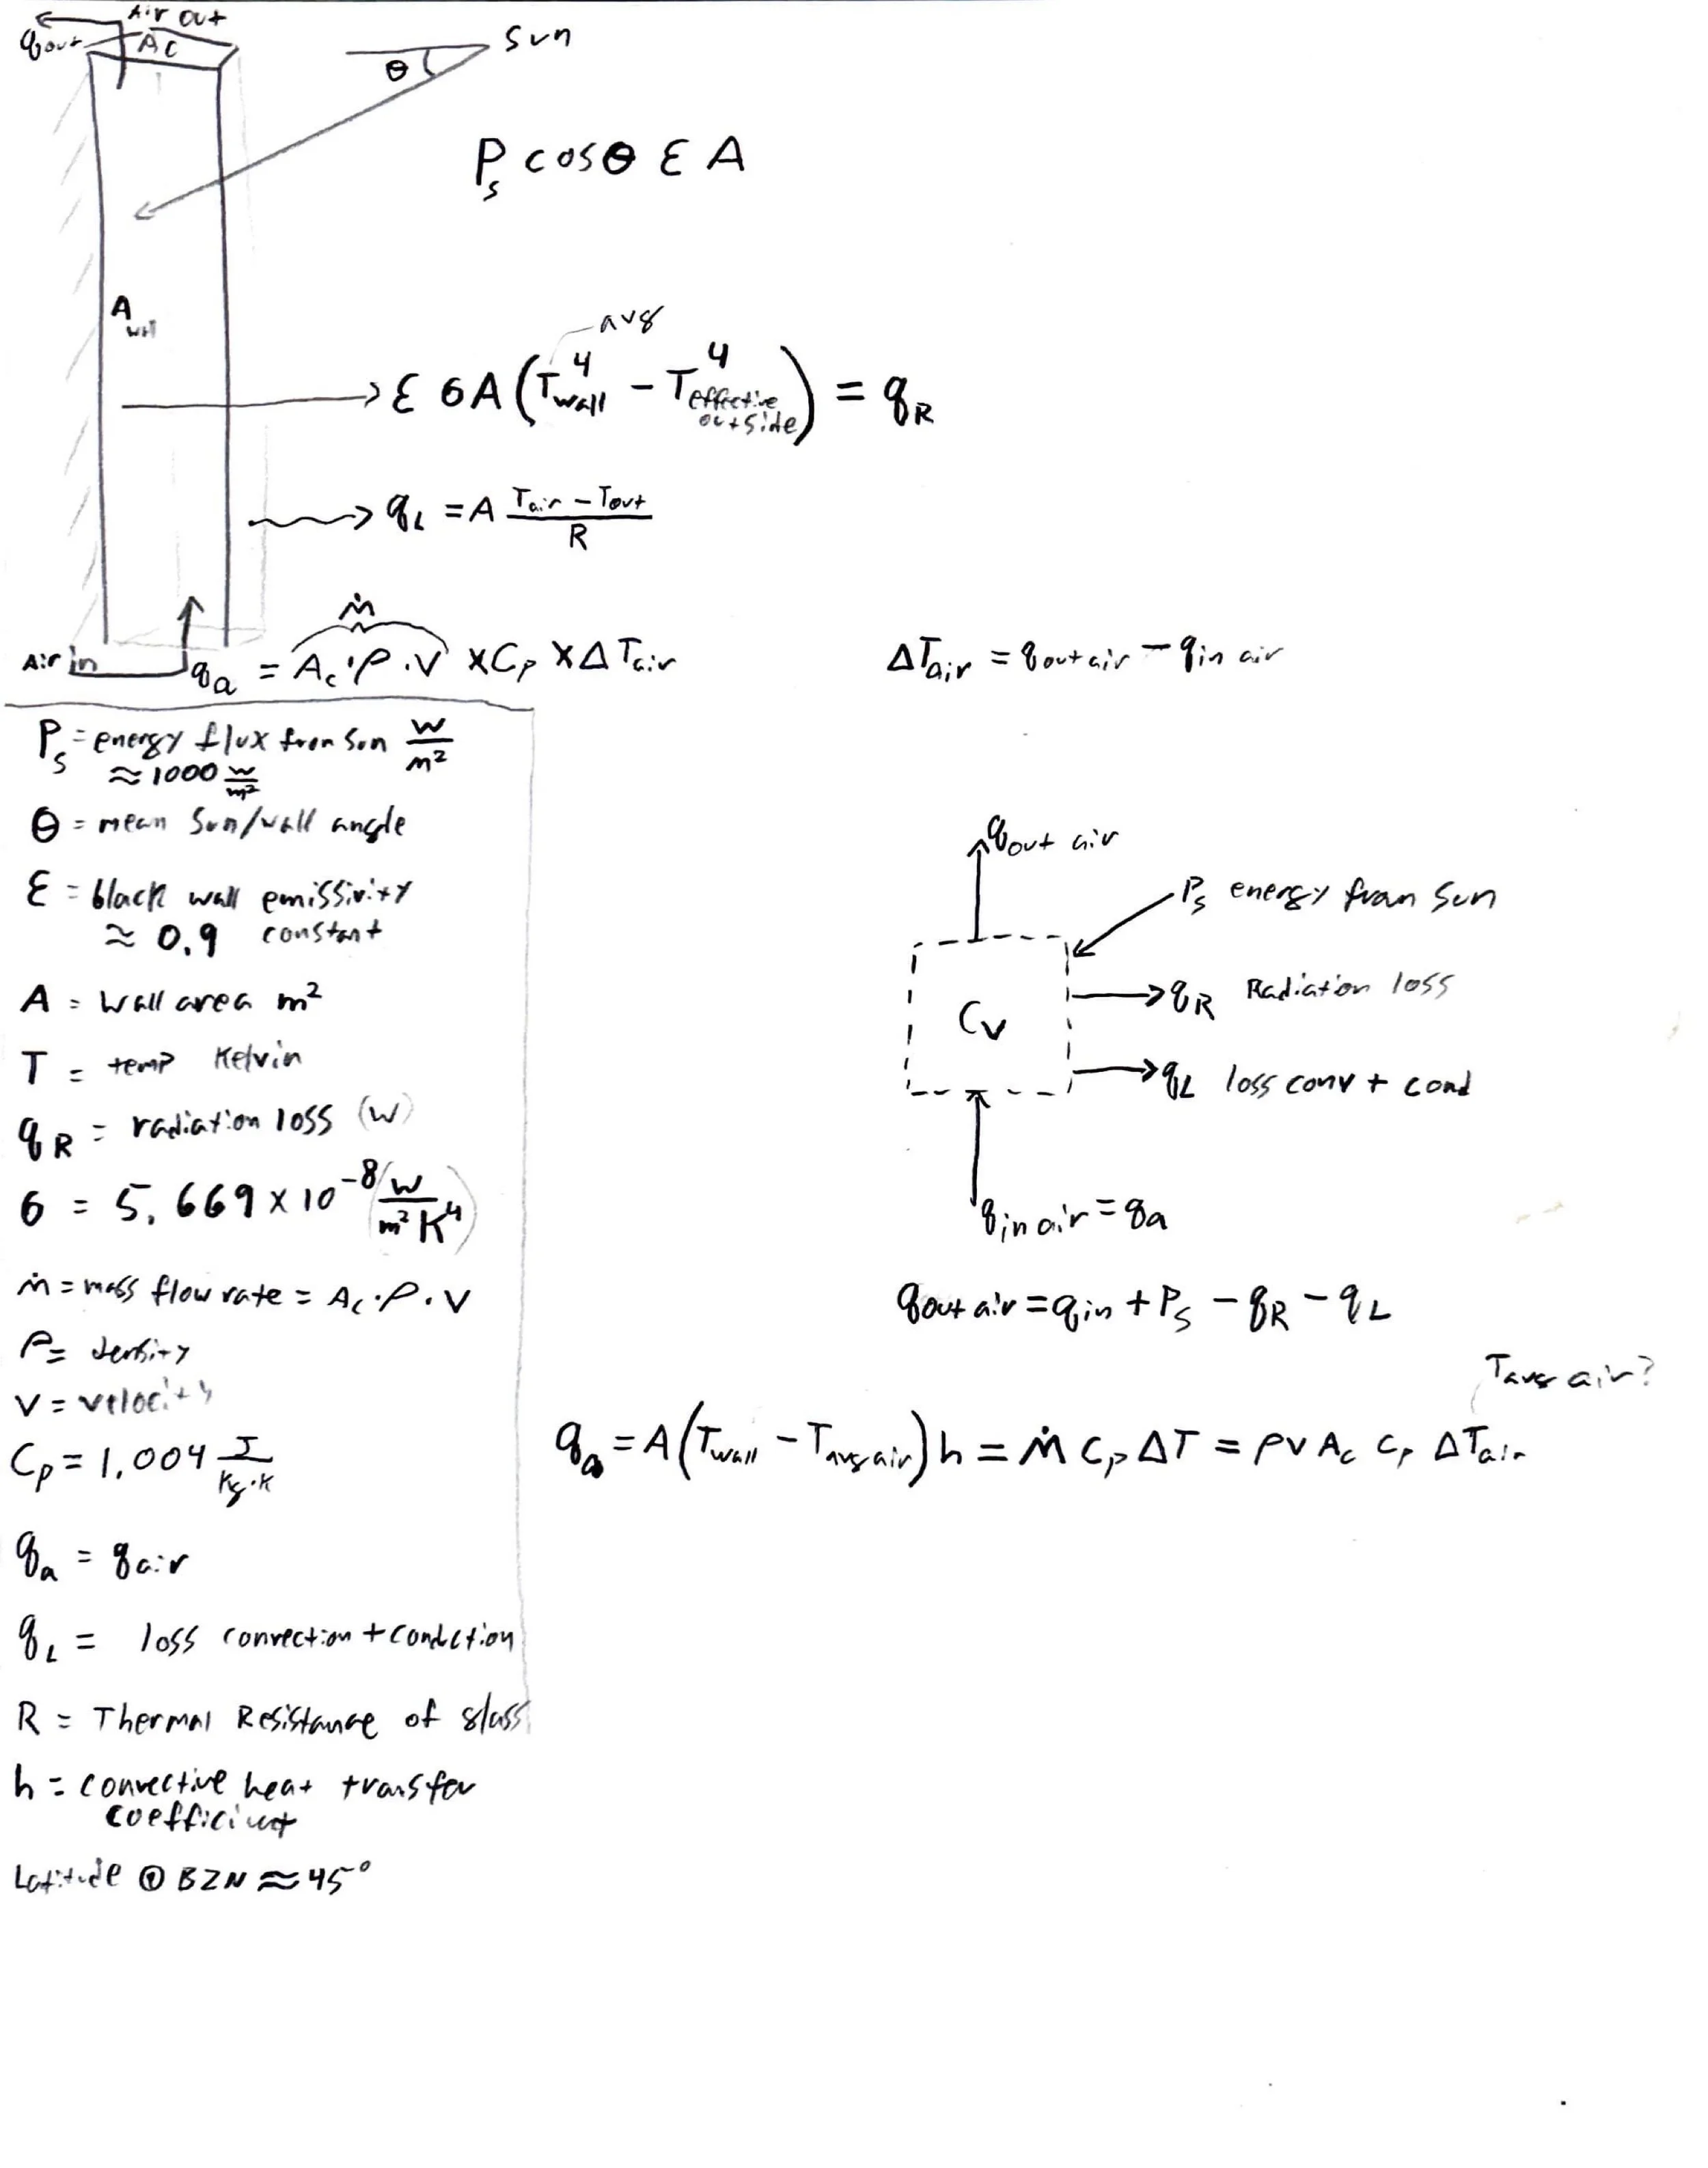 Air out
q_out
Ac
Sun
θ
P_s cosθ ε A
A_wall
avg
ε σ A (T_wall^4 - T_effective outside^4) = q_R
q_L = A (T_air - T_out) / R
ṁ
Air in
q_a = A_c · ρ · V × C_p × Δ T_air
ΔT_air = q_out air - q_in air
P_s = energy flux from sun W/m²
≈ 1000 W/m²
θ = mean Sun/wall angle
ε = black wall emissivity
≈ 0.9 constant
A = wall area m²
T = temp Kelvin
q_R = radiation loss (W)
σ = 5.669 × 10^-8 (W/m² K^4)
ṁ = mass flow rate = A_c · ρ · V
ρ = density
V = velocity
C_p = 1.004 J/kg·K
q_a = q_air
q_L = loss convection + condction
R = Thermal Resistance of glass
h = convective heat transfer
coefficient
Latitude @ BZN ≈ 45°
q_out air
P_s energy from Sun
q_R Radiation loss
CV
q_L loss conv + cond
q_in air = q_a
q_out air = q_in + P_s - q_R - q_L
T_avg air?
q_a = A (T_wall - T_avg air) h = ṁ C_p ΔT = ρ V A_c C_p ΔT_air